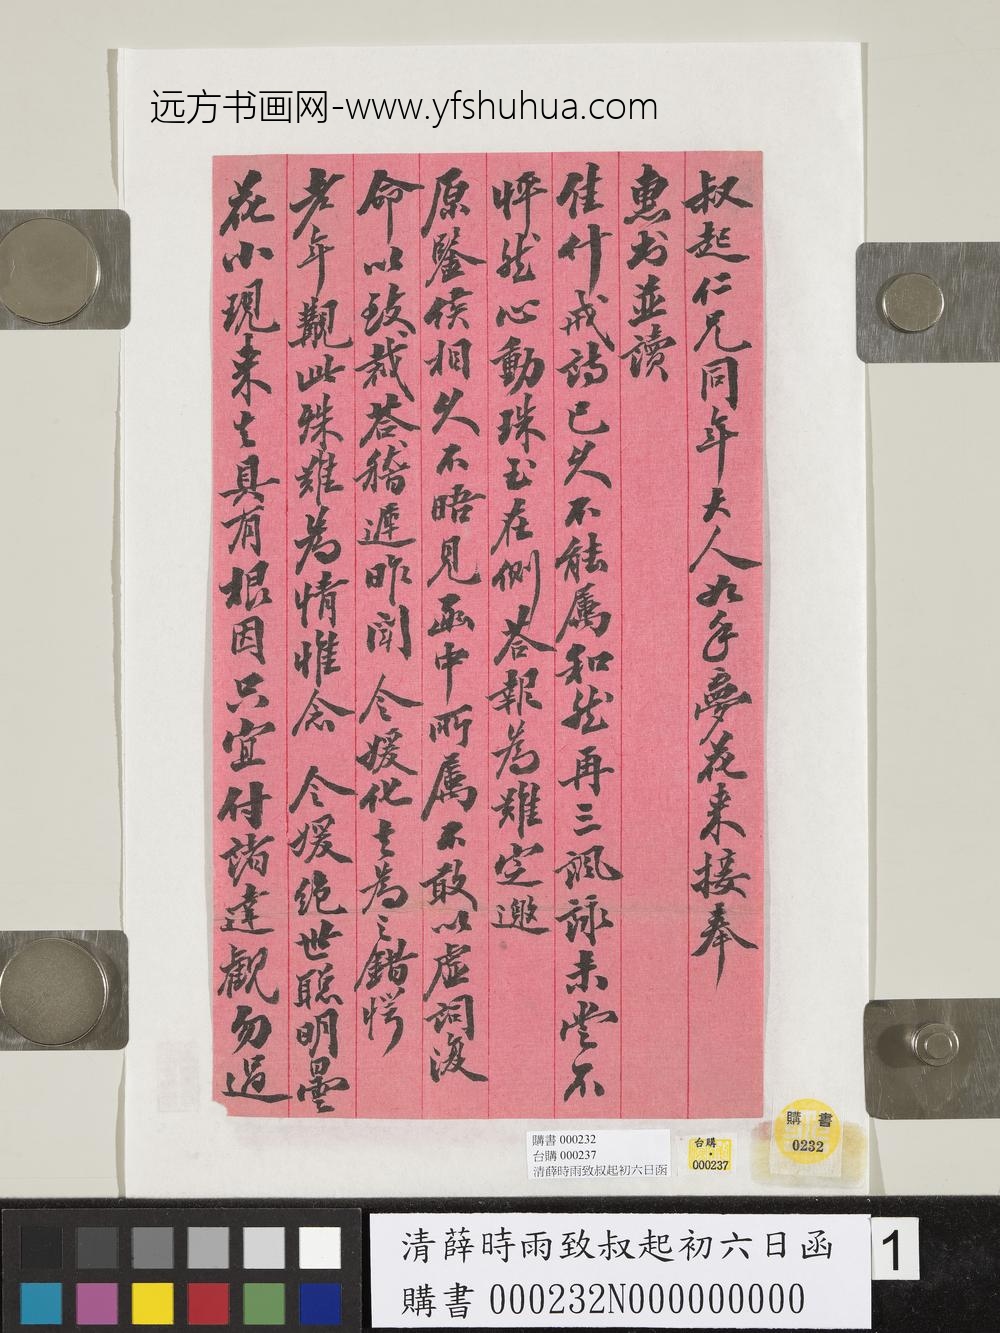 远方书画网-www.yfshuhua.com
叔起仁兄同年大人如手夢花來接奉
惠书並讀
佳什戒詩已久不能属和然再三諷詠未嘗不
怦然心動珠玉在側荅報為難定邀
原鑒侯相久不晤見函中所属不敢以虛詞復
命以致裁荅稽遲昨闻 令媛化去為之錯愕
老年觀此殊難為情惟念 令媛絕世聰明曇
花小現来去具有根因只宜付諸達觀勿過
購書 000232
台購 000237
清薛時雨致叔起初六日函
台購
000237
購書
0232
清薛時雨致叔起初六日函
購書 000232N000000000
1